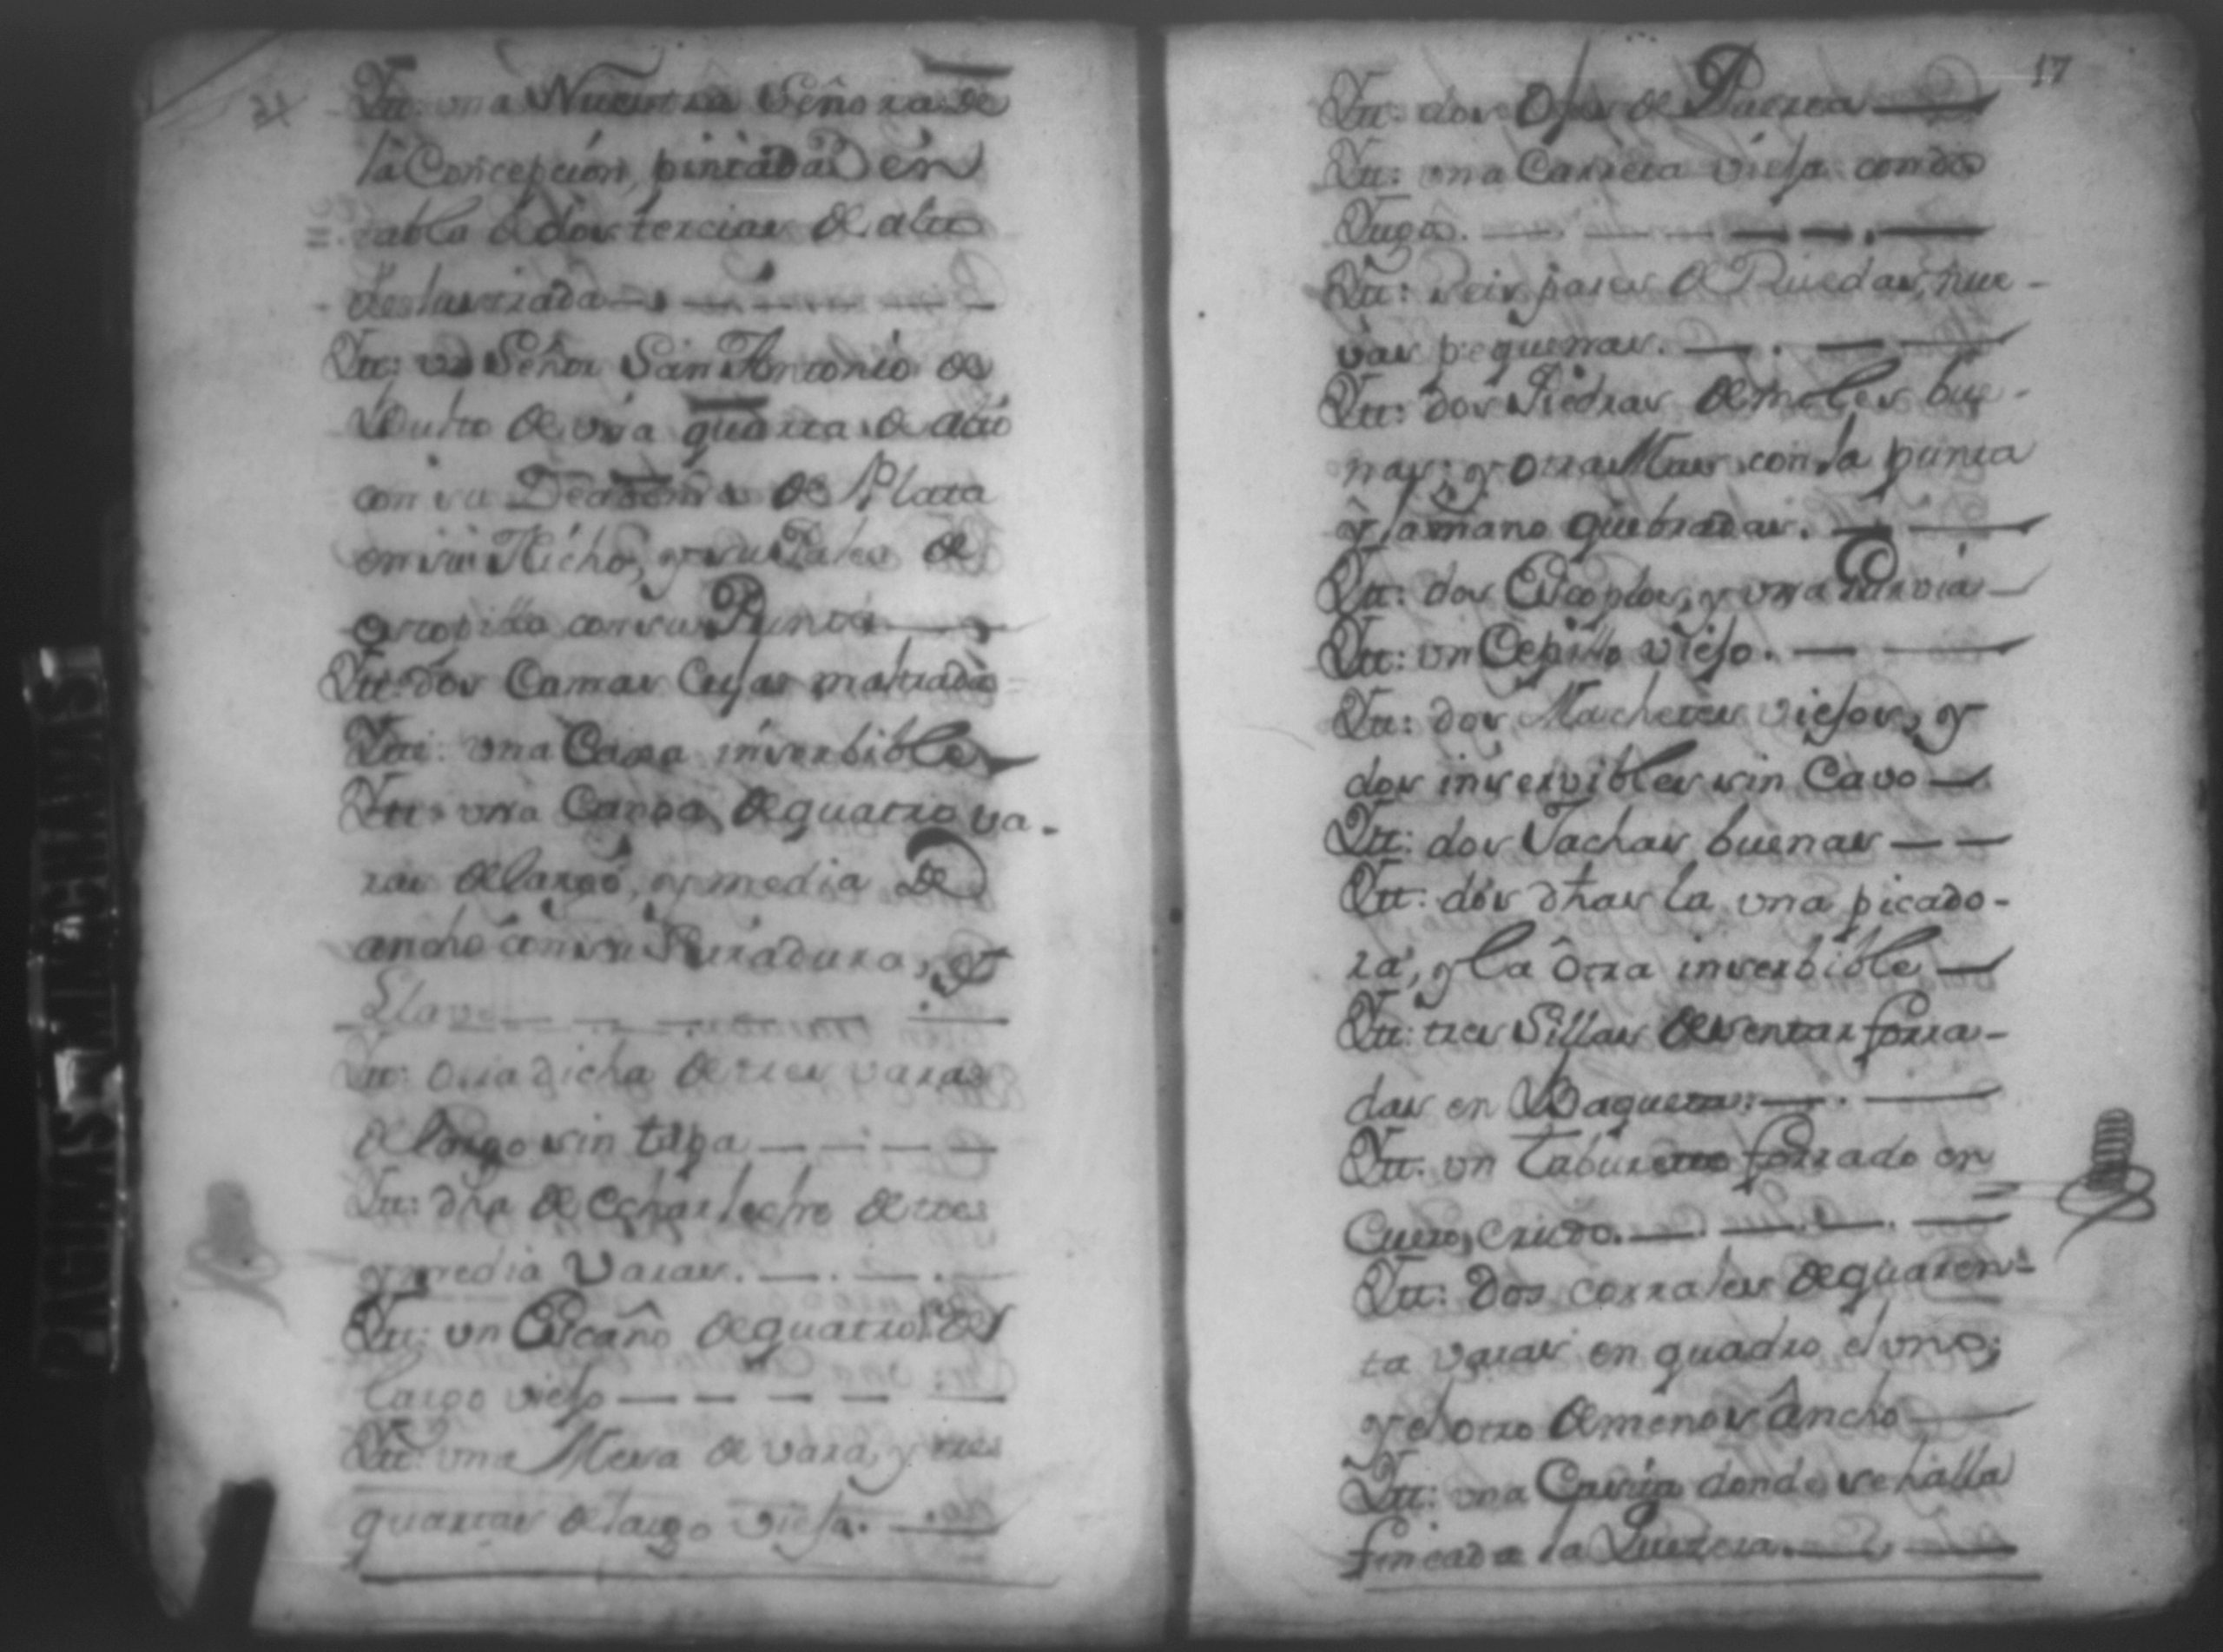 Ytt: una Nuestra Señora de
la Concepción, pintada en
tabla de dos tercias de alto
deslustrada
Ytt: un Señor San Antonio de
Bulto de una quarta de alto
con su Diadema de Plata
en su Nicho, y su Palia de
con su Punta
Ytt: dos Camas Cujas maltradas
Ytt: una Caxa inserbible
Ytt: una Canoa de quatro va-
ras de largo, y media De
ancho con su Serradura, y
Llave
Ytt: otra dicha de tres varas
de largo sin tapa
Ytt: dha de echar leche de tres
y media Varas.
Ytt: un Escaño de quatro de
largo viejo
Ytt: una Mesa de vara, y tres
quartas de largo vieja.
17
Ytt: dos de
Ytt: una Carreta vieja con dos
Yugos.
Ytt: seis pares de Ruedas, nue-
vas pequeñas.
Ytt: dos Piedras de moler bue-
nas; y otra Mas con la punta
y la mano quebradas.
Ytt: dos Escoplos, y una
Ytt: un Cepillo viejo.
Ytt: dos Machetes viejos, y
dos inservibles sin Cavo
Ytt: dos Jachas buenas
Ytt: dos dhas la una picado-
ra, y la otra inserbible
Ytt: tres Sillas de sentar forra-
das en Baqueta.
Ytt: un taburete forrado en
Cuero, Crudo.
Ytt: Dos corrales de quaren-
ta varas en quadro el uno;
y el otro de menos Ancho
Ytt: una donde se halla
fincada la